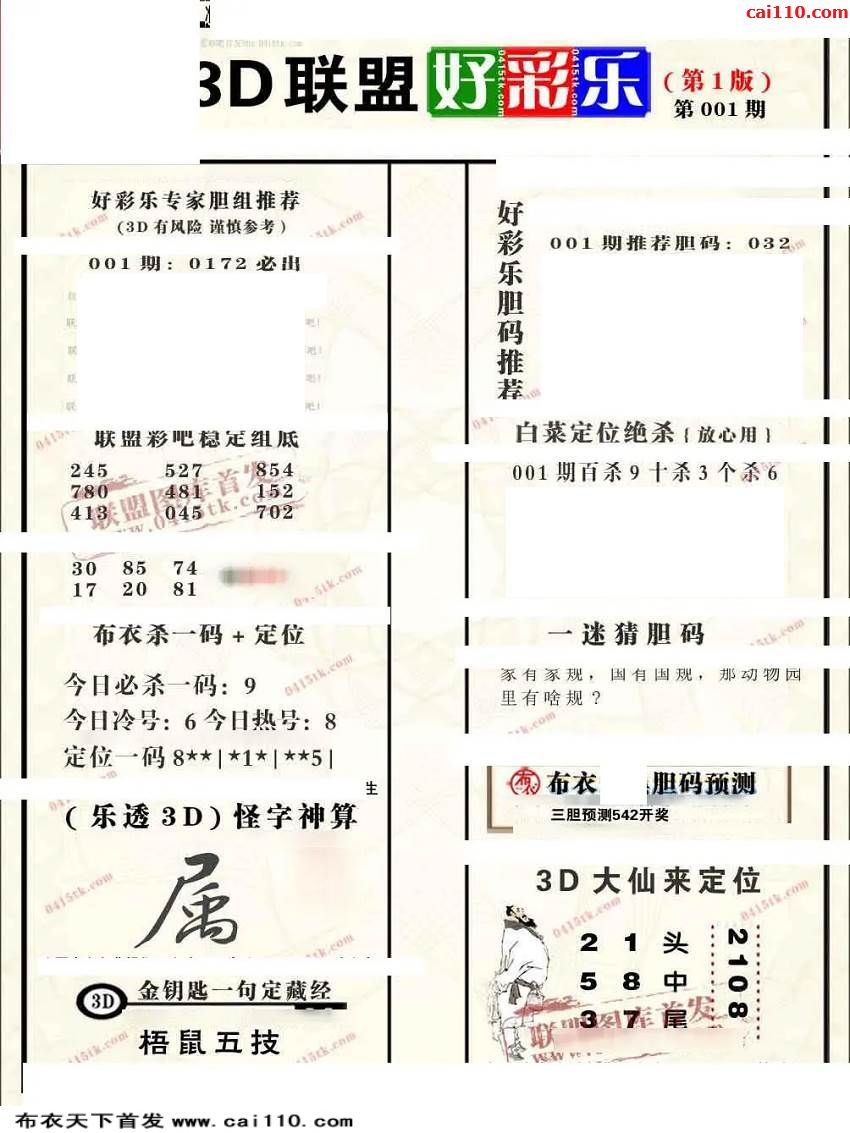 cai110.com
3D联盟好彩乐
(第1版)
第001期
好彩乐专家胆组推荐
(3D有风险 谨慎参考)
001期：0172必出
联盟彩吧稳定组底
245 527 854
780 481 152
413 045 702
30 85 74
17 20 81
布衣杀一码+定位
今日必杀一码：9
今日冷号：6 今日热号：8
定位一码 8**|*1*|**5|
生
(乐透3D)怪字神算
属
3D 金钥匙一句定藏经
梧鼠五技
好彩乐胆码推荐
001期推荐胆码：032
白菜定位绝杀{放心用}
001期百杀9十杀3个杀6
一迷猜胆码
家有家规，国有国规，那动物园
里有啥规？
布衣 胆码预测
三胆预测542开奖
3D大仙来定位
2 1 头
5 8 中
3 7 尾
2108
联盟图库首发
www.0415tk.com
0415tk.com
布衣天下首发 www.cai110.com